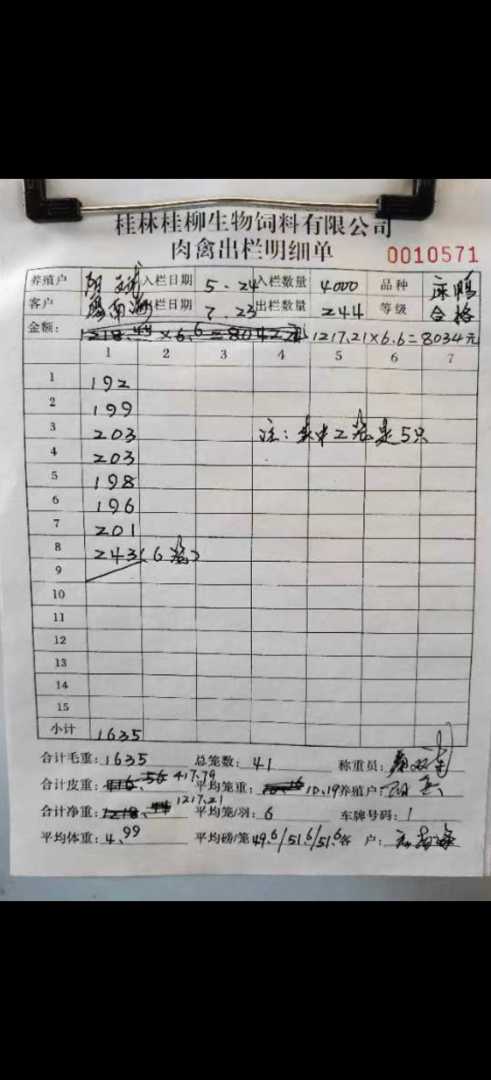 桂林桂柳生物饲料有限公司
肉禽出栏明细单
0010571
养殖户 阳 入栏日期 5.24 入栏数量 4000 品种
客户 栏日期 7.23 出栏数量 244 等级 合格
金额: 1218.44×6.6=8042 1217.21×6.6=8034元
1 2 3 4 5 6 7
1 192
2 199
3 203 注:其中2笼是5只
4 203
5 198
6 196
7 201
8 243(6笼)
9
10
11
12
13
14
15
小计 1635
合计毛重:1635 总笼数:41 称重员:
合计皮重:416.56 417.79 平均笼重:10.16 10.19 养殖户:阳
合计净重:1218.44 1217.21 平均笼/羽:6 车牌号码:1
平均体重:4.99 平均磅/笼 49.6/51.6/51.6 客 户: